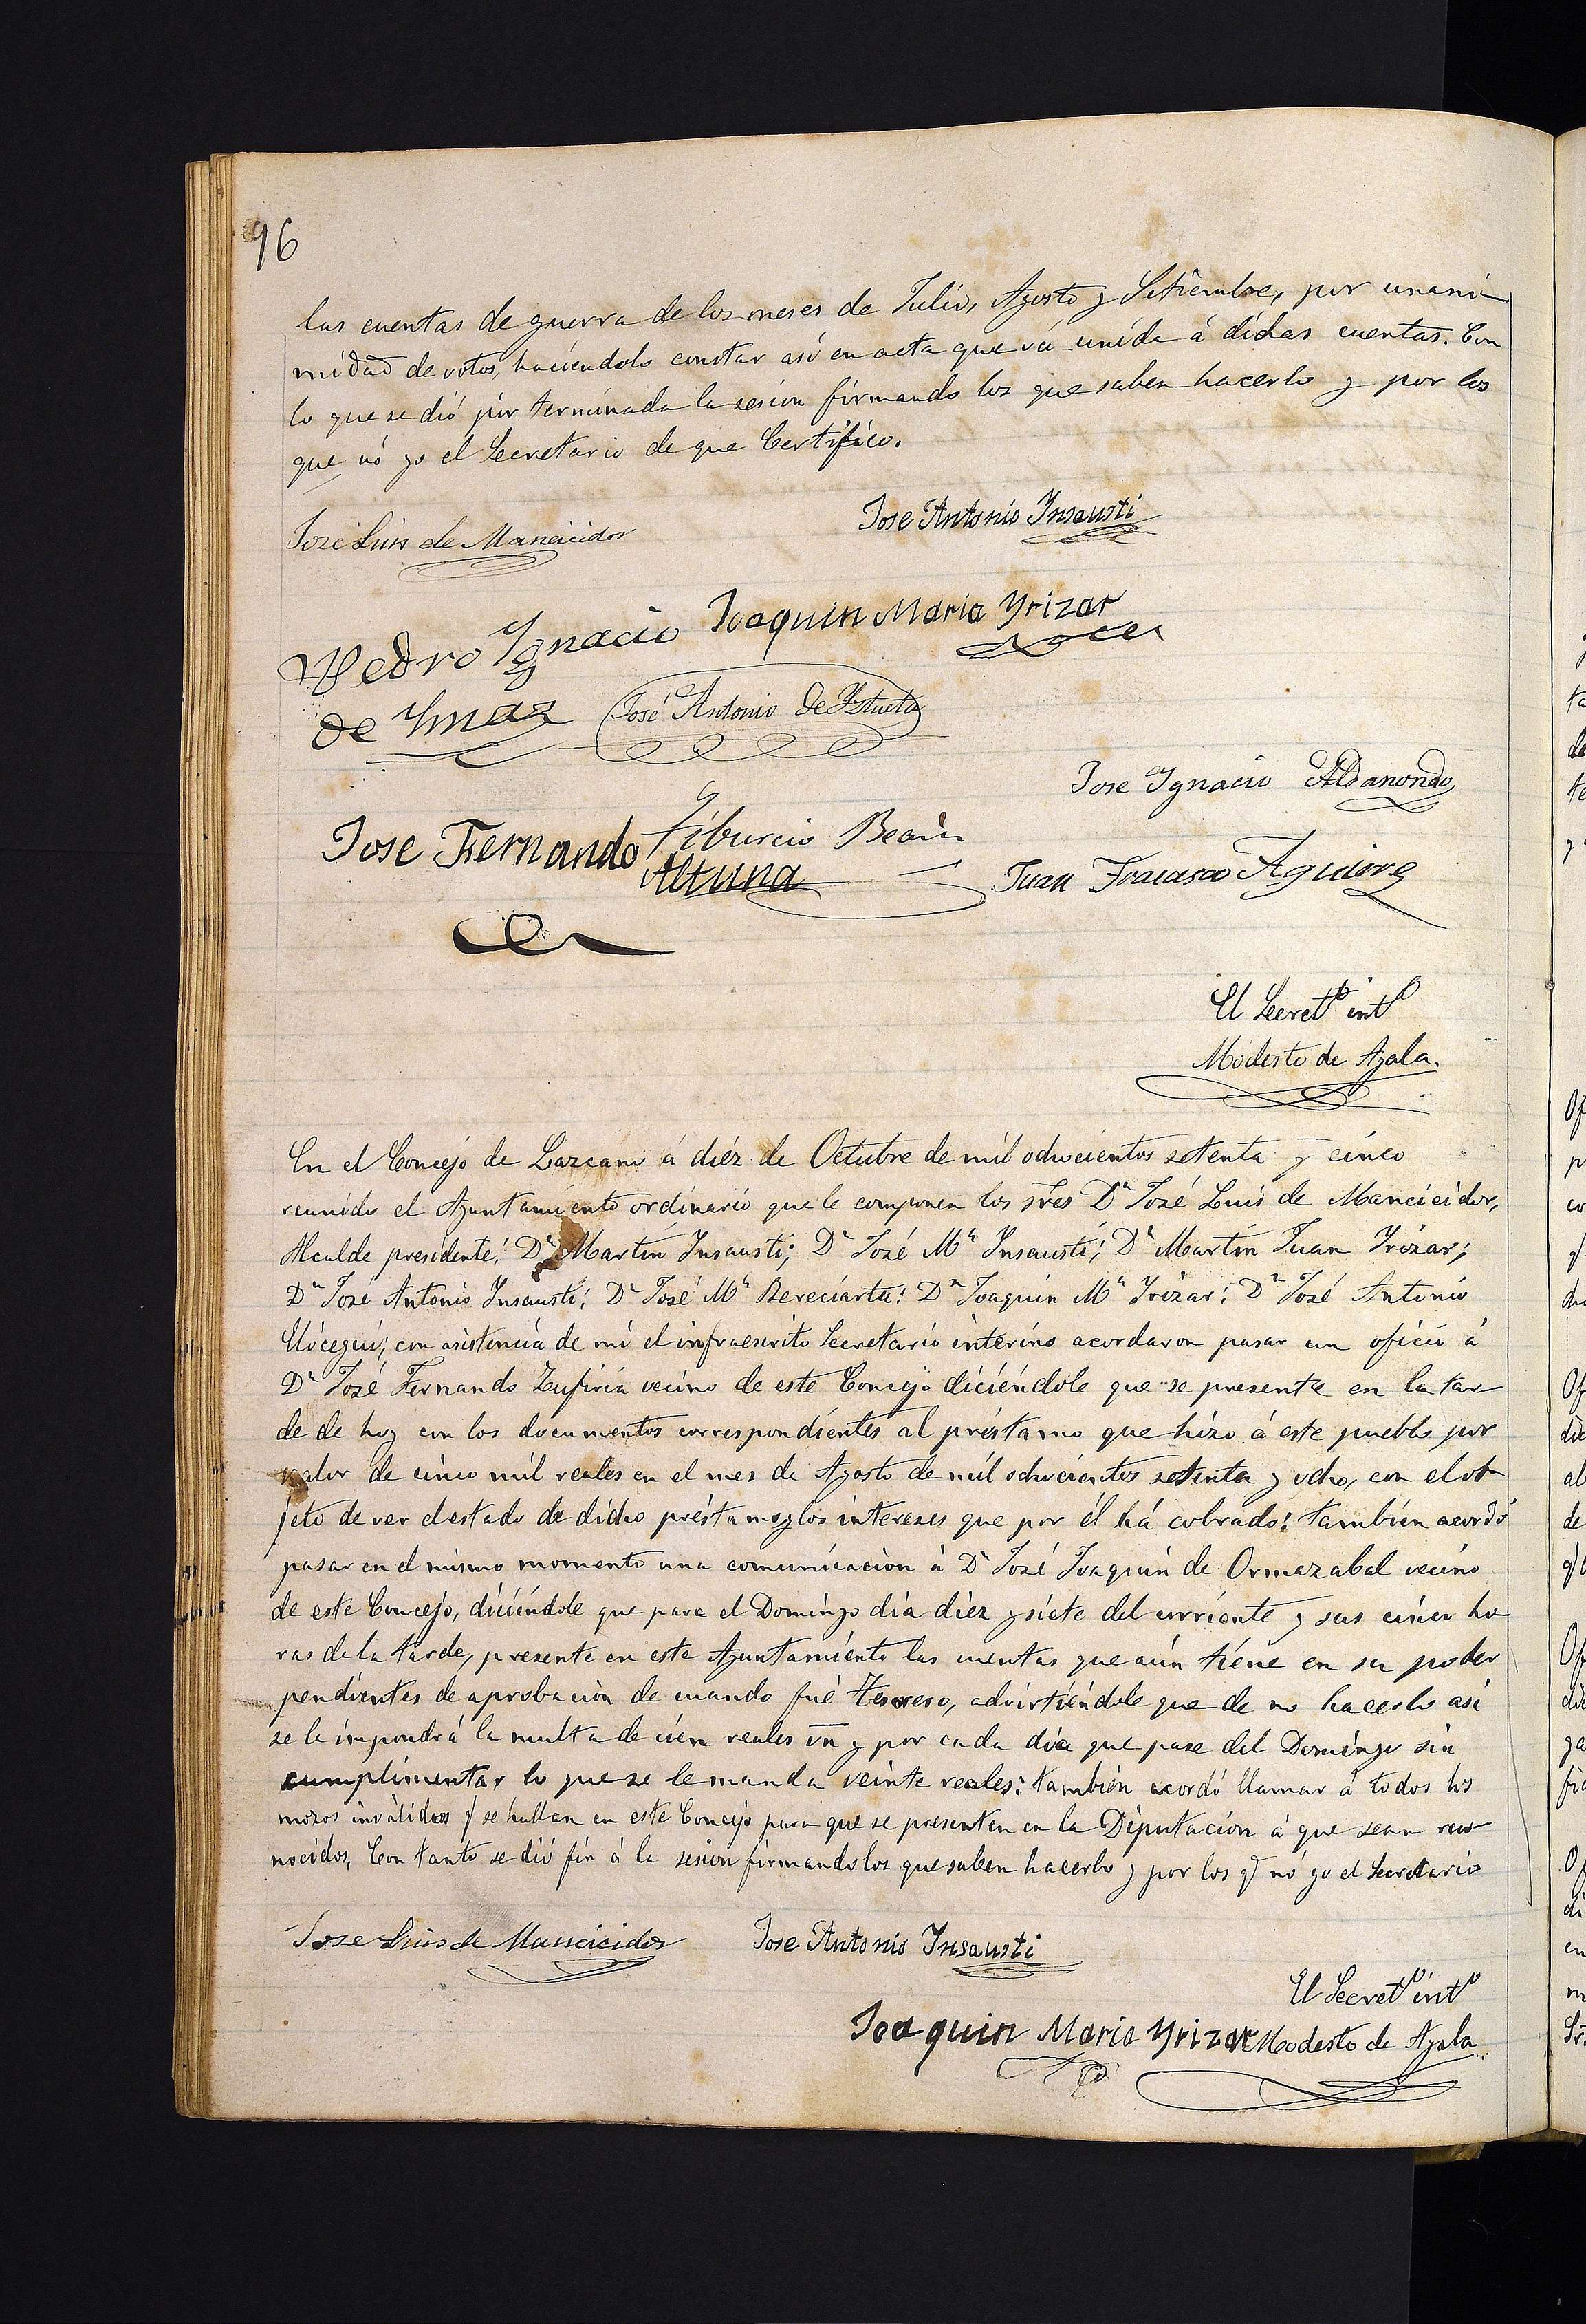 96
las cuentas de guerra de los meses de Julio, Agosto y Setiembre, por unani-
midad de votos, haciendolo constar asi en acta que vá unida á dichas cuentas. Con
lo que se dió por terminada la sesion firmando los que saben hacerlo y por los
que nó yo el Secretario de que Certifico.
Jose Luis de Mancicidor
Jose Antonio Insausti
Pedro Ygnacio Joaquin Maria Yrizar
de Ymaz José Antonio de Ystueta
Jose Ygnacio Aldanondo
Jose Fernando Tiburcio Beain
Altuna Juan Francisco Aguirre
El Secretº intº
Modesto de Ayala.
En el Concejo de Lazcano á diéz de Octubre de mil ochocientos setenta y cinco
reunido el Ayuntamiento ordinario que le componen los Sres Dn José Luis de Mancicidor,
Alcalde presidente: Dn Martin Insausti; Dn José Mª Insausti; Dn Martin Juan Irizar;
Dn Jose Antonio Insausti: Dn José Mª Bereciartu: Dn Joaquin Mª Irizar: Dn José Antonio
con asistencia de mi el infraescrito Secretario interino acordaron pasar un oficio á
Dn José Fernando Zufiria vecino de este Concejo diciéndole que se presente en la tar-
de de hoy con los documentos correspondientes al préstamo que hizo á este pueblo por
valor de cinco mil reales en el mes de Agosto de mil ochocientos setenta y ocho, con el ob-
jeto de ver el estado de dicho préstamo y los intereses que por él há cobrado: también acordó
pasar en el mismo momento una comunicacion á Dn José Joaquin de Ormazabal vecino
de este Concejo, diciéndole que para el Domingo dia diez y siete del corriente y sus cinco ho-
ras de la tarde, presente en este Ayuntamiento las cuentas que aún tiene en su poder
pendientes de aprobacion de cuando fué Tesorero, advirtiéndole que de no hacerlo asi
se le impondrá la multa de cien reales vn y por cada dia que pase del Domingo sin
cumplimentar lo que se le manda veinte reales: también acordó llamar á todos los
mozos inválidos q se hallan en este Concejo para que se presenten en la Diputacion á que sean reco-
nocidos, Con tanto se dió fin á la sesion firmando los que saben hacerlo y por los q nó yo el Secretario
Jose Luis de Mancicidor Jose Antonio Insausti
El Secretº intº
Joaquin Maria Yrizar Modesto de Ayala